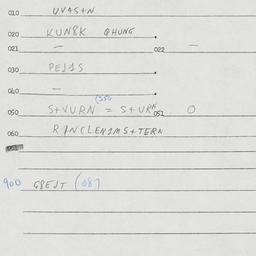 010 UVAS+N
020 KUN8K QHUNG.
021 — 022 —
030 PEJ1S.
040 —.
050 S+VURN = S+URN 051 O
060 RANCLENIMS+TERN
900 G8EJT (087